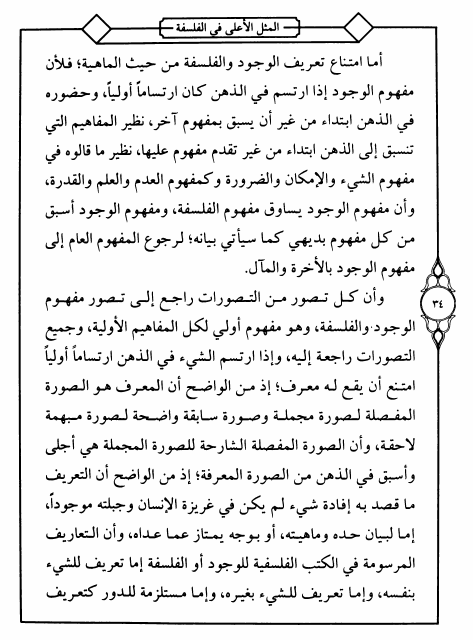 المثل الأعلى في الفلسفة
أما امتناع تعريف الوجود والفلسفة من حيث الماهية؛ فلأن
مفهوم الوجود إذا ارتسم في الذهن كان ارتساماً أولياً، وحضوره
في الذهن ابتداء من غير أن يسبق بمفهوم آخر، نظير المفاهيم التي
تنسبق إلى الذهن ابتداء من غير تقدم مفهوم عليها، نظير ما قالوه في
مفهوم الشيء والإمكان والضرورة وكمفهوم العدم والعلم والقدرة،
وأن مفهوم الوجود يساوق مفهوم الفلسفة، ومفهوم الوجود أسبق
من كل مفهوم بديهي كما سيأتي بيانه؛ لرجوع المفهوم العام إلى
مفهوم الوجود بالأخرة والمآل.
وأن كل تصور من التصورات راجع إلى تصور مفهوم
٣٤
الوجود والفلسفة، وهو مفهوم أولي لكل المفاهيم الأولية، وجميع
التصورات راجعة إليه، وإذا ارتسم الشيء في الذهن ارتساماً أولياً
امتنع أن يقع له معرف؛ إذ من الواضح أن المعرف هو الصورة
المفصلة لصورة مجملة وصورة سابقة واضحة لصورة مبهمة
لاحقة، وأن الصورة المفصلة الشارحة للصورة المجملة هي أجلى
وأسبق في الذهن من الصورة المعرفة؛ إذ من الواضح أن التعريف
ما قصد به إفادة شيء لم يكن في غريزة الإنسان وجبلته موجوداً،
إما لبيان حده وماهيته، أو بوجه يمتاز عما عداه، وأن التعاريف
المرسومة في الكتب الفلسفية للوجود أو الفلسفة إما تعريف للشيء
بنفسه، وإما تعريف للشيء بغيره، وإما مستلزمة للدور كتعريف